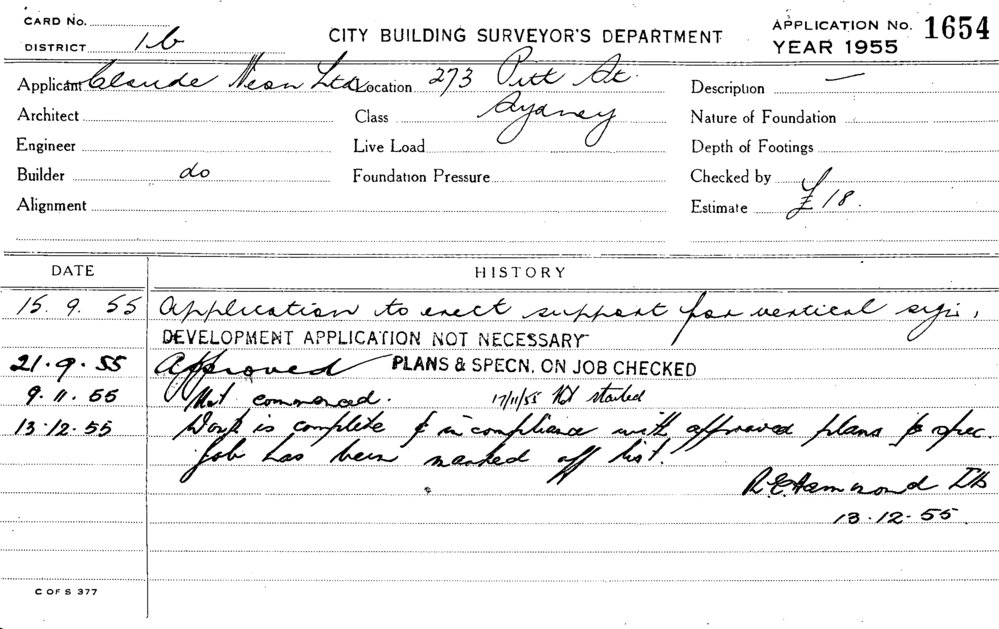 CARD No.
DISTRICT 1b
CITY BUILDING SURVEYOR'S DEPARTMENT
APPLICATION No. 1654
YEAR 1955
Applicant Claude Neon Ltd Location 273 Pitt St. Description —
Architect Class Sydney Nature of Foundation
Engineer Live Load Depth of Footings
Builder do Foundation Pressure Checked by
Alignment Estimate £18.
DATE HISTORY
15. 9. 55 Application to erect support for vertical sign,
DEVELOPMENT APPLICATION NOT NECESSARY
21.9.55 Approved PLANS & SPECN. ON JOB CHECKED
9. 11. 55 Not commenced. 17/11/55 Not started
13.12.55 Work is complete & in compliance with approved plans & spec.
Job has been marked off list.
R.E. Hammond
13.12.55
C OF S 377